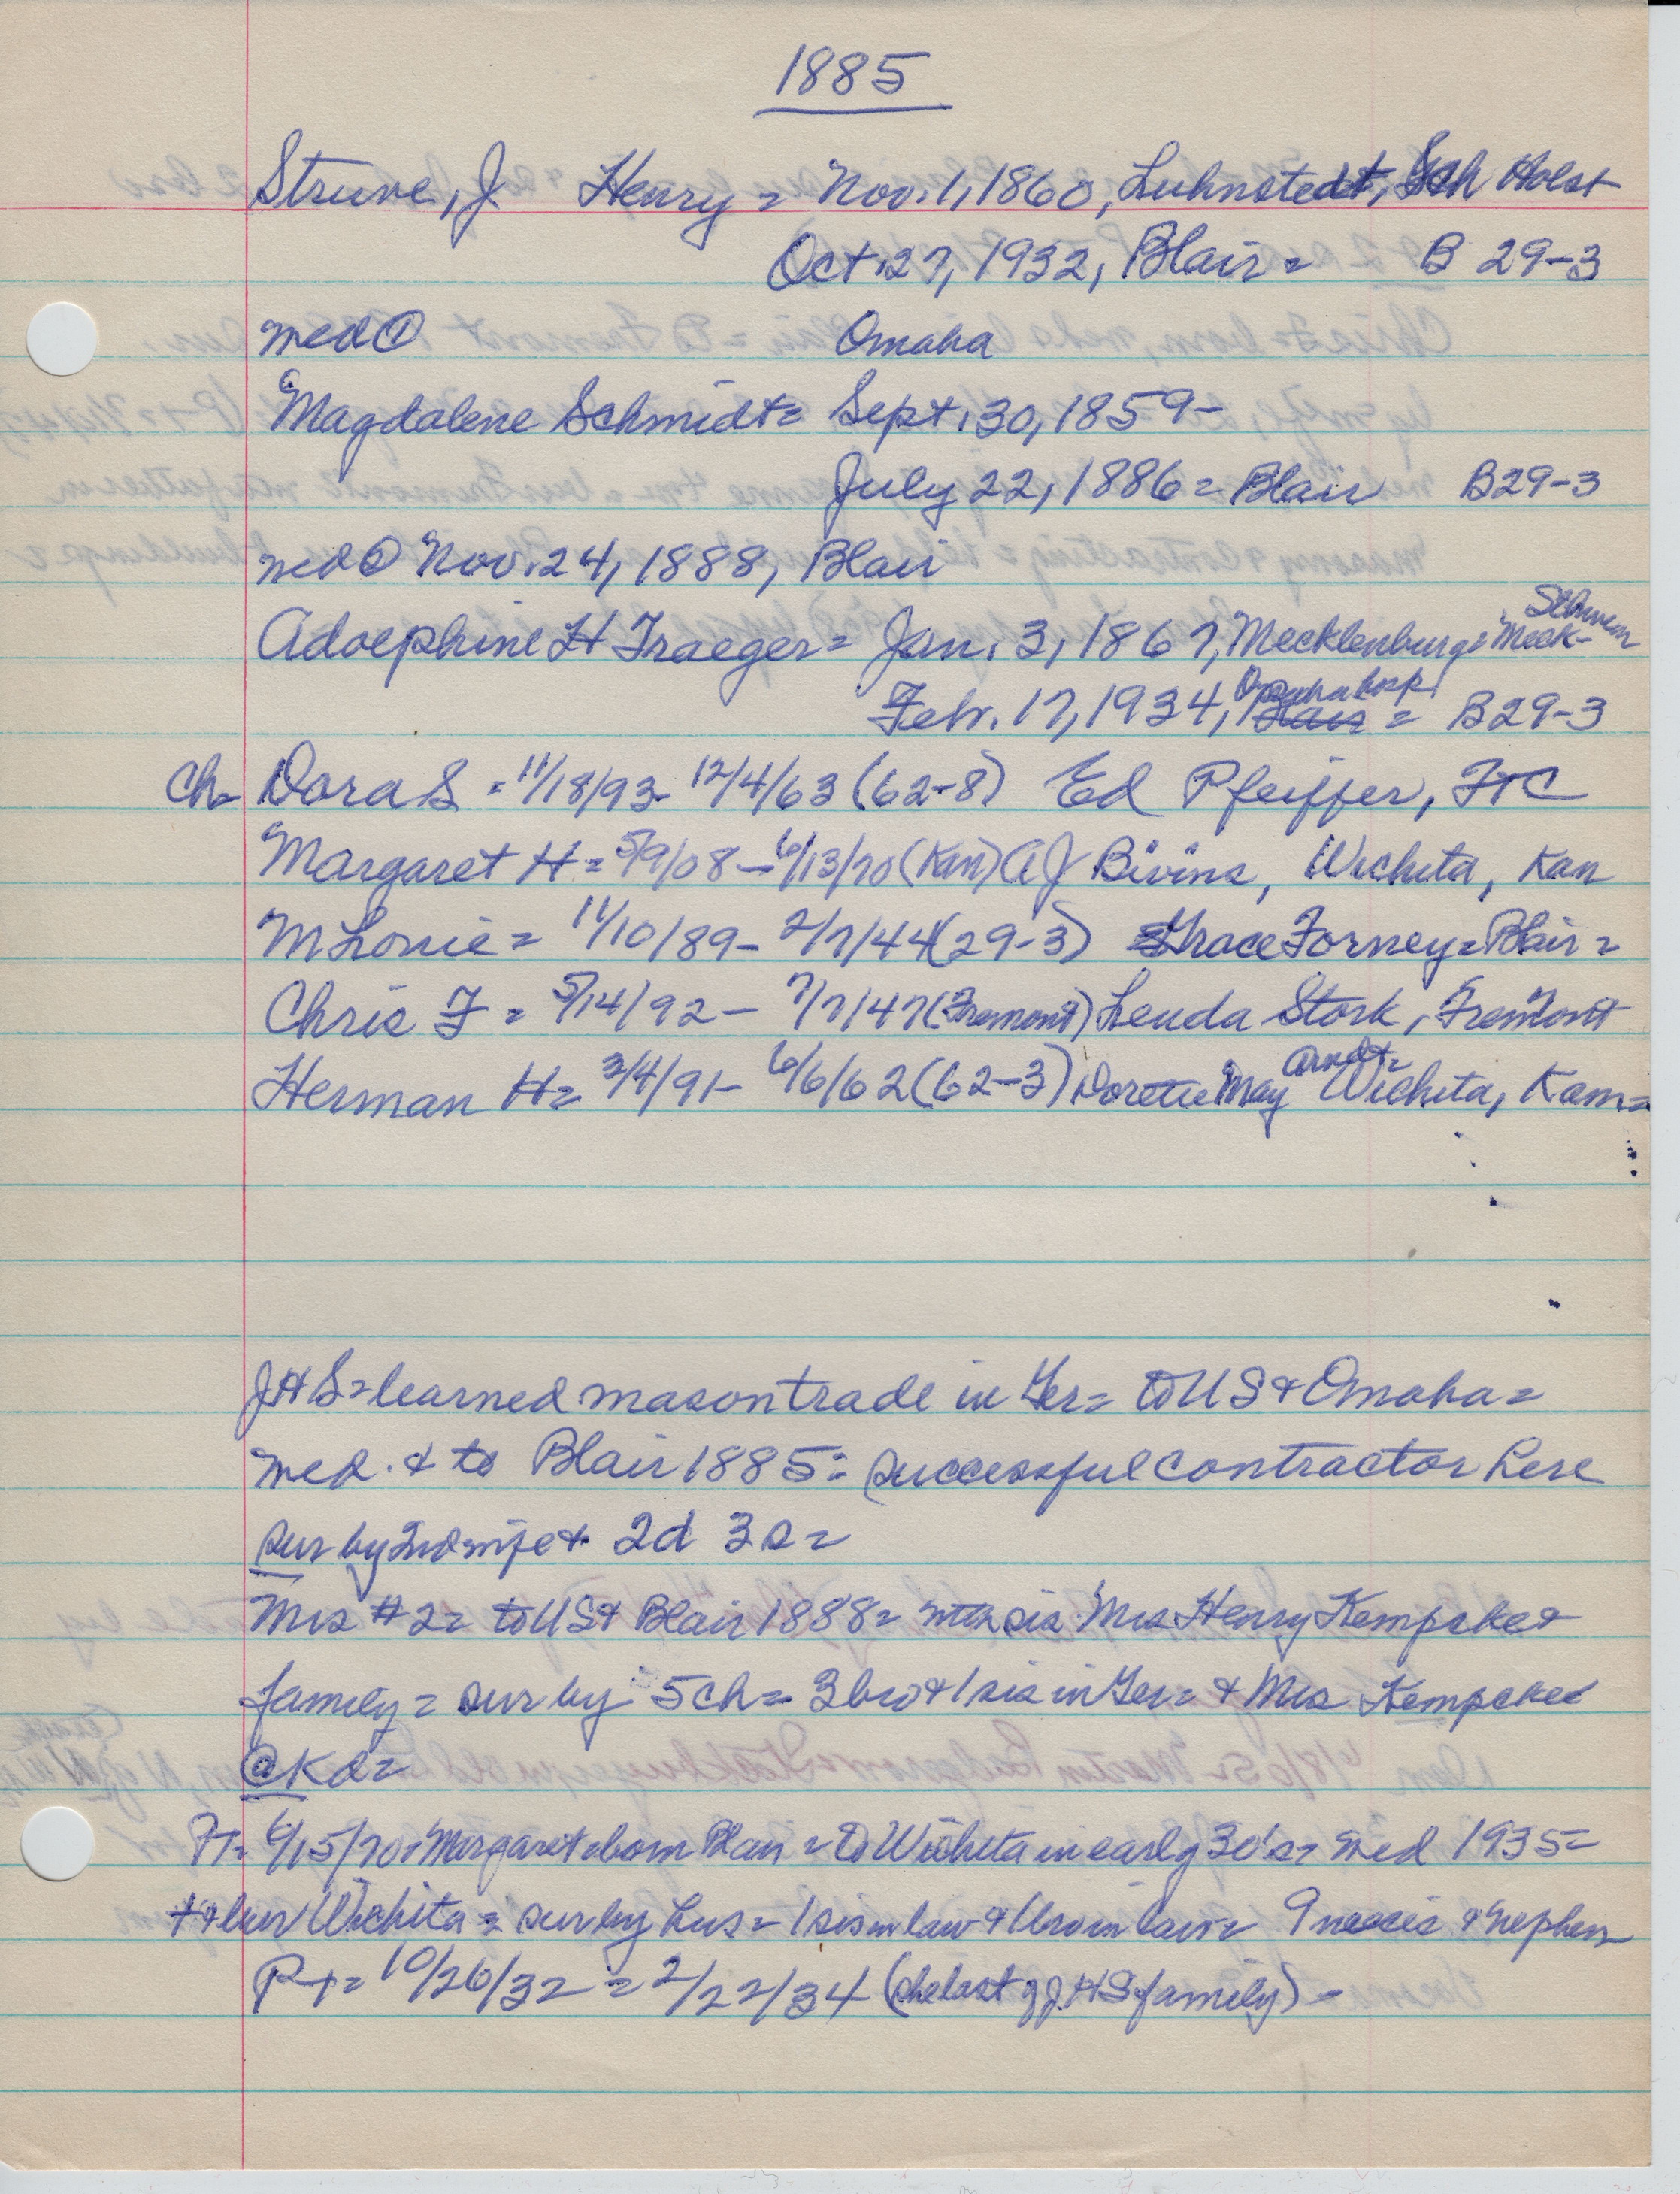 1885
Struve, J. Henry = Nov. 1, 1860, Luhnstedt, Sch Holst
Oct. 27, 1932, Blair = B 29-3
med ① Omaha
Magdalene Schmidt = Sept. 30, 1859 -
July 22, 1886 = Blair B29-3
med ② Nov. 24, 1888, Blair
Schwerin
Adoephine H Traeger = Jan. 3, 1867, Mecklenburg = Meck-
Omaha hosp
Febr. 17, 1934, Blair = B29-3
Ch = Dora S = 11/18/93 - 12/4/63 (62-8) Ed Pfeiffer, FtC
Margaret H = 5/9/08 - 6/13/70 (Kan) A J Bivins, Wichita, Kan
M Lonie = 11/10/89 - 2/7/44 (29-3) Grace Forney = Blair =
Chris F = 5/14/92 - 7/7/47 (Fremont) Leuda Stork, Fremont
Arndt =
Herman H = 3/4/91 - 6/6/62 (62-3) May Wichita, Kan =
JHS = learned mason trade in Ger = to US & Omaha =
med. & to Blair 1885 = successful contractor here
sur by 2nd wife & 2d 3s =
Mrs #2 = to US & Blair 1888 = with sis Mrs Henry Kempcke &
family = sur by 5 ch = 3 bro & 1 sis in Ger = & Mrs Kempcke
@ Kd =
Pt = 6/15/70 = Margaret = born Blair = to Wichita in early 30's = med 1935 =
& bur Wichita = sur by hus = 1 sis in law & 1 bro in law = 9 neices & nephews
P-t = 10/26/32 = 2/22/34 (she last of JHS family) =